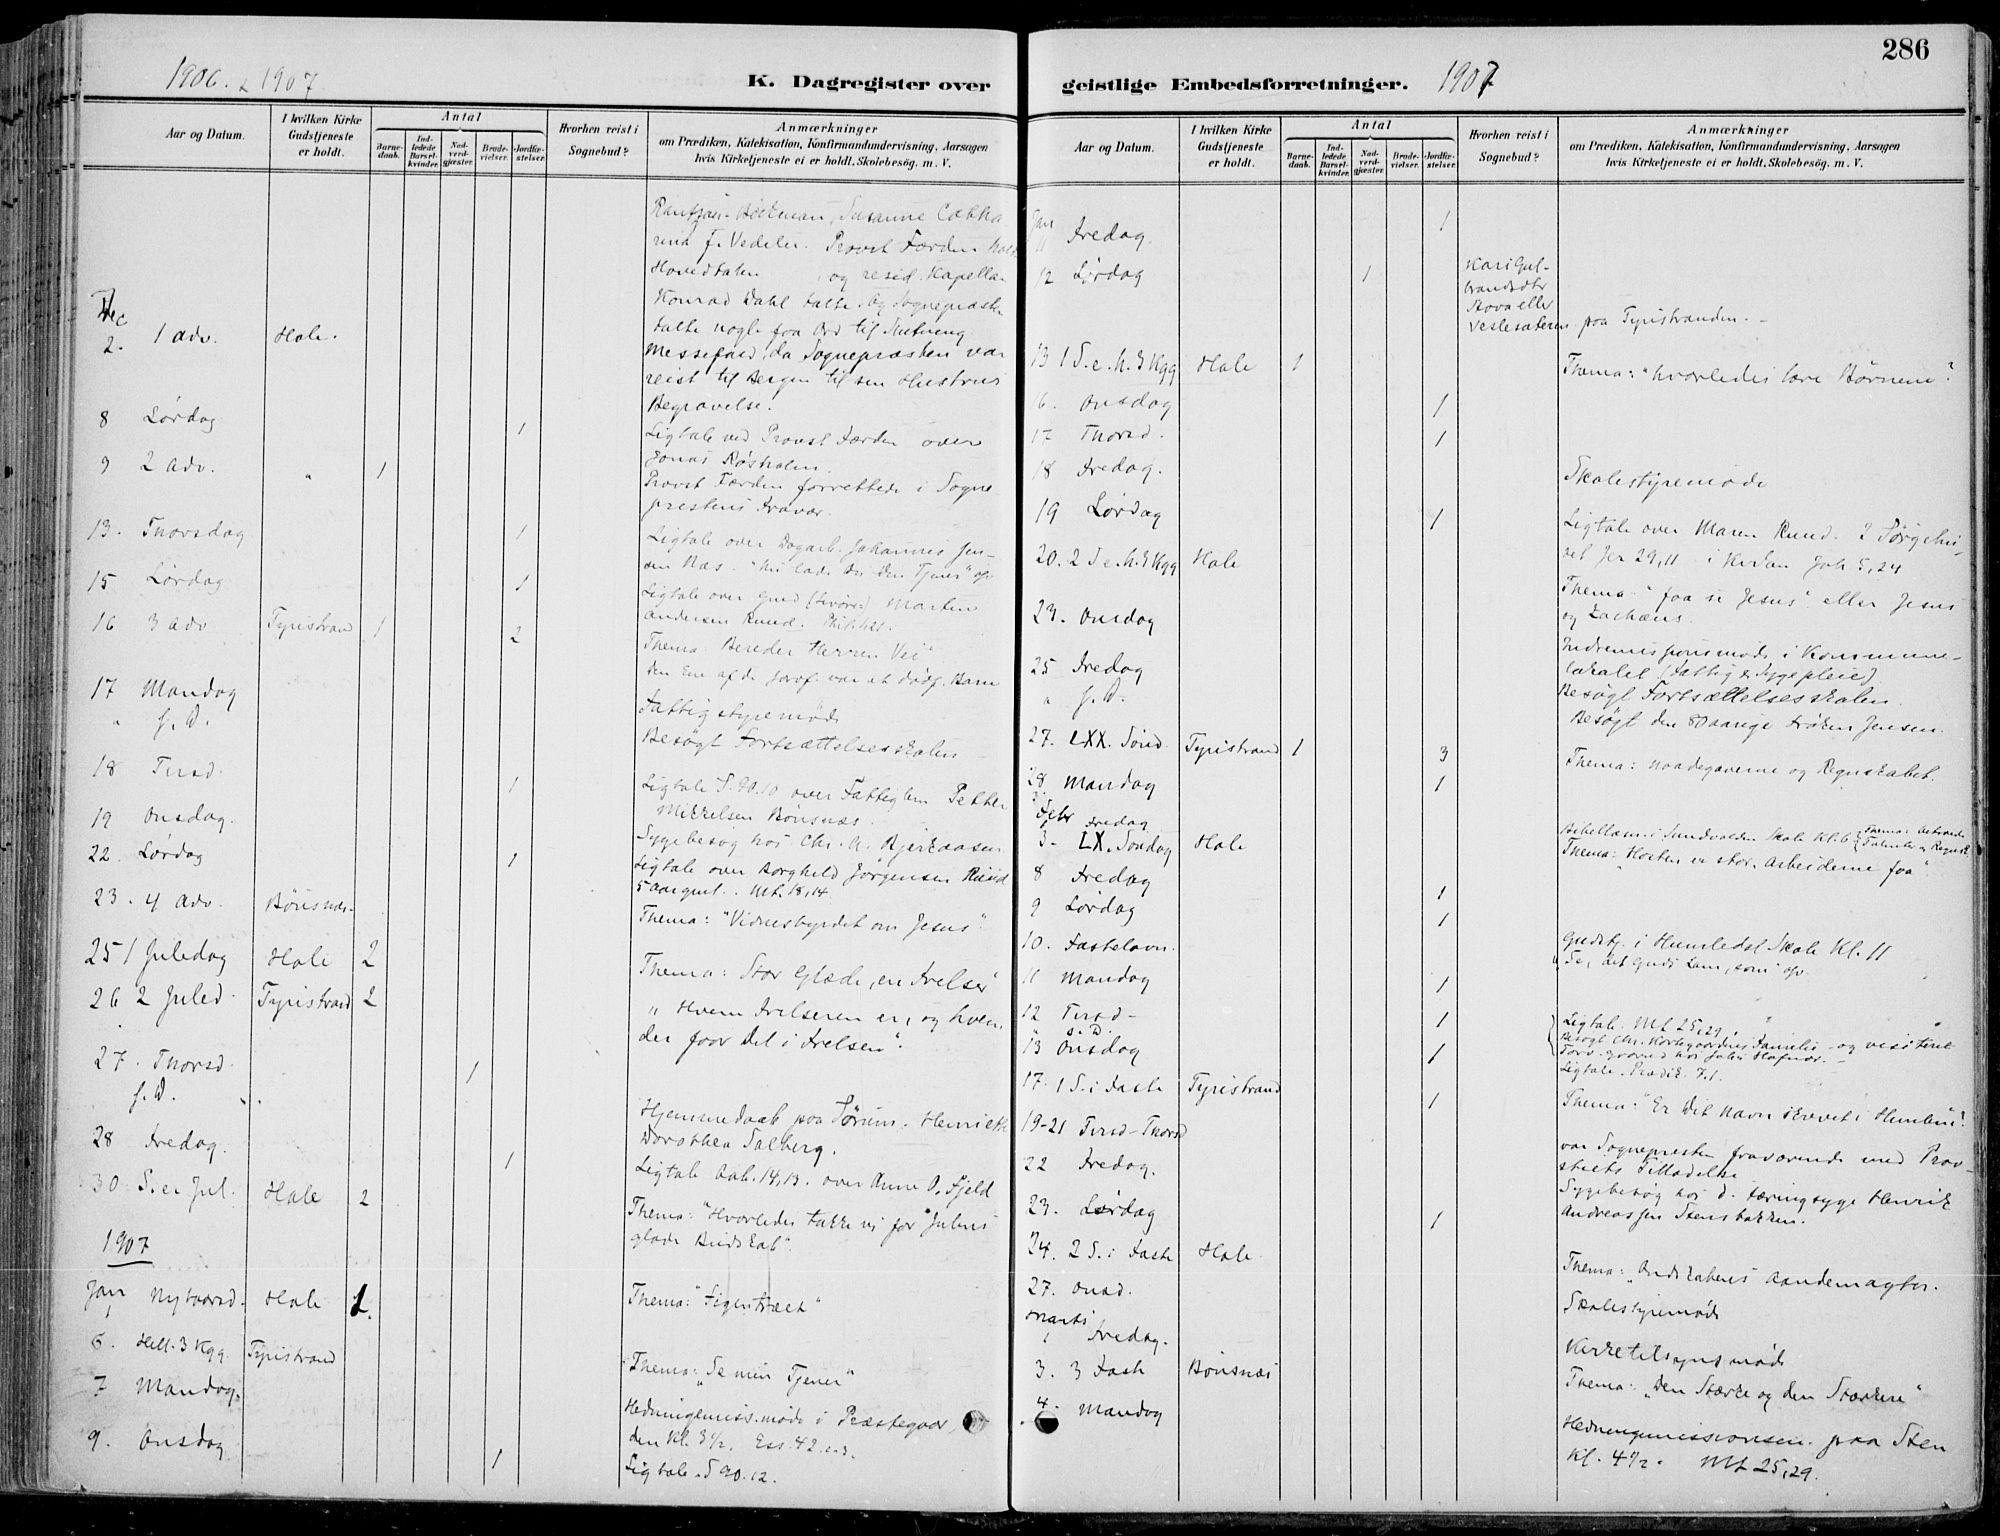 286
1906. & 1907
K. Dagregister over geistlige Embedsforretninger. 1907
Aar og Datum.
I hvilken Kirke Gudstjeneste er holdt.
Antal
Barnedaab.
Indledede Barselkvinder.
Nadverdgjæster.
Brudevielser.
Jordfæstelser.
Hvorhen reist i Sognebud?
Anmærkninger
om Prædiken, Katekisation, Konfirmandundervisning. Aarsagen
hvis Kirketjeneste ei er holdt. Skolebesög. m. V.
Böckman, Susanne Catha
rina f. Vedeler. Provst Færden holdt
Hovedtalen og resid. Kapellan
Konrad Dahl talte. Og Sognepræsten
talte nogle faa Ord til
Dec
2. 1 Adv. Hole.
Messefald, da Sognepræsten var
reist til Bergen til sin Hustrus
Begravelse.
8 Lørdag 1
Ligtale ved Provst Færden over
Jonas Røsholm.
9 2 Adv. " 1
Provst Færden forrettede i Sogne
prestens Fravær.
13. Thorsdag 1
Ligtale over Dagarb. Johannes Jen-
sen Næs. "Nu lader du din Tjener" osv
15 Lørdag 1
Ligtale over Gmd Martin
Andersen Rund.
16 3 Adv Tyristrand 1 2
Thema: Bereder Herren Vei"
den Ene af de Jordf. var et dödf. Barn
17 Mandag
Fattigstyremöde
" s. D.
Besögt Fortsættelsesskolen
18 Tirsd. 1
Ligtale S. 90.10 over Fattiglem Petter
Mikkelsen Bönsnæs.
19 Onsdag.
Sygebesög hos Chr. A. Bjerkaasen
22. Lørdag 1
Ligtale over Borghild Jørgensen Rund
5 Aar gml. Mt. 18,14.
23. 4 Adv. Bönsnæs.
Thema: "Vidnesbyrdet om Jesus".
25 1 Juledag Hole 2
Thema: Stor Glæde, en Frelser"
26 2 Juled. Tyristrand 2
" Hvem Frelseren er, og hvem,
der faar Del i Frelsen".
27. Thorsd. 1
s. D.
Hjemmedaab paa Sörum. Henriette
Dorothea Solberg.
28 Fredag. 1
Ligtale Aab. 14,13. over Anne O. Fjeld
30. S. e. Jul. Hole 2
Thema: "Hvorledes takke vi for Julens
glade Budskab".
1907
Jan
1 Nytaarsd. Hole 1.
Thema: "Figentræet"
6. Hell. 3 Kgg. Tyristrand
Thema: "Se min Tjener"
7 Mandag.
Hedningemiss.möde i Præstegaar
den Kl. 3½. Ess. 42
9. Onsdag 1
Ligtale. S 90.12.
Aar og Datum.
I hvilken Kirke Gudstjeneste er holdt.
Antal
Barnedaab.
Indledede Barselkvinder.
Nadverdgjæster.
Brudevielser.
Jordfæstelser.
Hvorhen reist i Sognebud?
Anmærkninger
om Prædiken, Katekisation, Konfirmandundervisning. Aarsagen
hvis Kirketjeneste ei er holdt. Skolebesög. m. V.
Jan
11 Fredag. 1
12 Lørdag 1
Kari Gul-
brandsdtr
Stova eller
Veslesæteren paa Tyristranden.
13 1 S. e. H. 3 Kgg Hole 1
Thema: "Hvorledes lære Børnene?
16. Onsdag 1
17 Thorsd. 1
18 Fredag.
Skolestyremöde
19 Lørdag 1
Ligtale over Maren Rund. I Sørgehu-
set Jer 29,11. i Kirken Joh 5,24
20. 2 S e. H. 3 Kgg Hole
Thema: "faa se Jesus" eller Jesus
og Zachæus.
23. Onsdag
Indremissionsmöde i Kommune-
lokalet (Fattig & Sygepleie).
25 Fredag
Besögt Fortsættelsesskolen.
" s. D.
Besögt den 80 aarige Frøken Jensen.
27. LXX. Sönd. Tyristrand 1 3
Thema: Naadegaverne og Regnskabet.
28 Mandag 1
Febr
1 Fredag
Bibellæsn. i Sundvolden Skole Kl. 6
3. LX. Søndag Hole
Thema: "Høsten er stor, Arbeiderne faa".
8 Fredag 1
9 Lørdag 1
10. Fastelavn.
Gudstj. i Humledal Skole Kl. 11
"Se, det Guds Lam, som" osv.
11 Mandag 1
12 Tirsd- 1
Ligtale. Mt 25,29.
" s. D.
Besögt Chr. Kirkegaardens Familie og visiteret
13 Onsdag 1
Ligtale. Prædik. 7.1.
17. 1 S. i Faste Tyristrand 1
Thema: "Er dit Navn skrevet i Himlen"?
19-21 Tirsd-Thorsd
var Sognepresten fraværende med Prov-
stiets Tilladelse
22 Fredag.
Sygebesög hos d. tæringsyge Henrik
Andreassen Stensbakken.
23. Lørdag 1
24. 2 S. i Faste Hole
Thema: "Ondskabens Aandemagter.
27. Onsd.
Skolestyremöde
Marts
1 Fredag.
Kirketilsynsmöde
3. 3 Fast Bönsnæs
Thema: "Den Stærke og den Stærkere"
4. Mandag
Hedningemissionsfn. paa Sten
Kl. 4½. Mt 25,29.